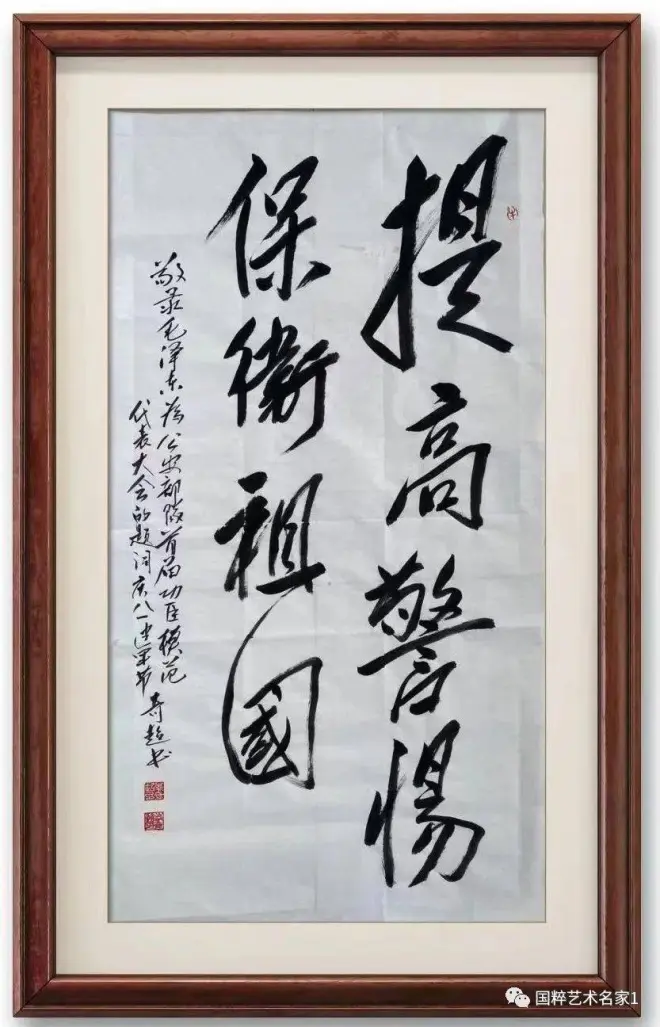 提高警惕
保衛祖國
敬录毛泽东为公安部队首届功臣模范
代表大会的题词庆八一建军节 寿超书
国粹艺术名家1